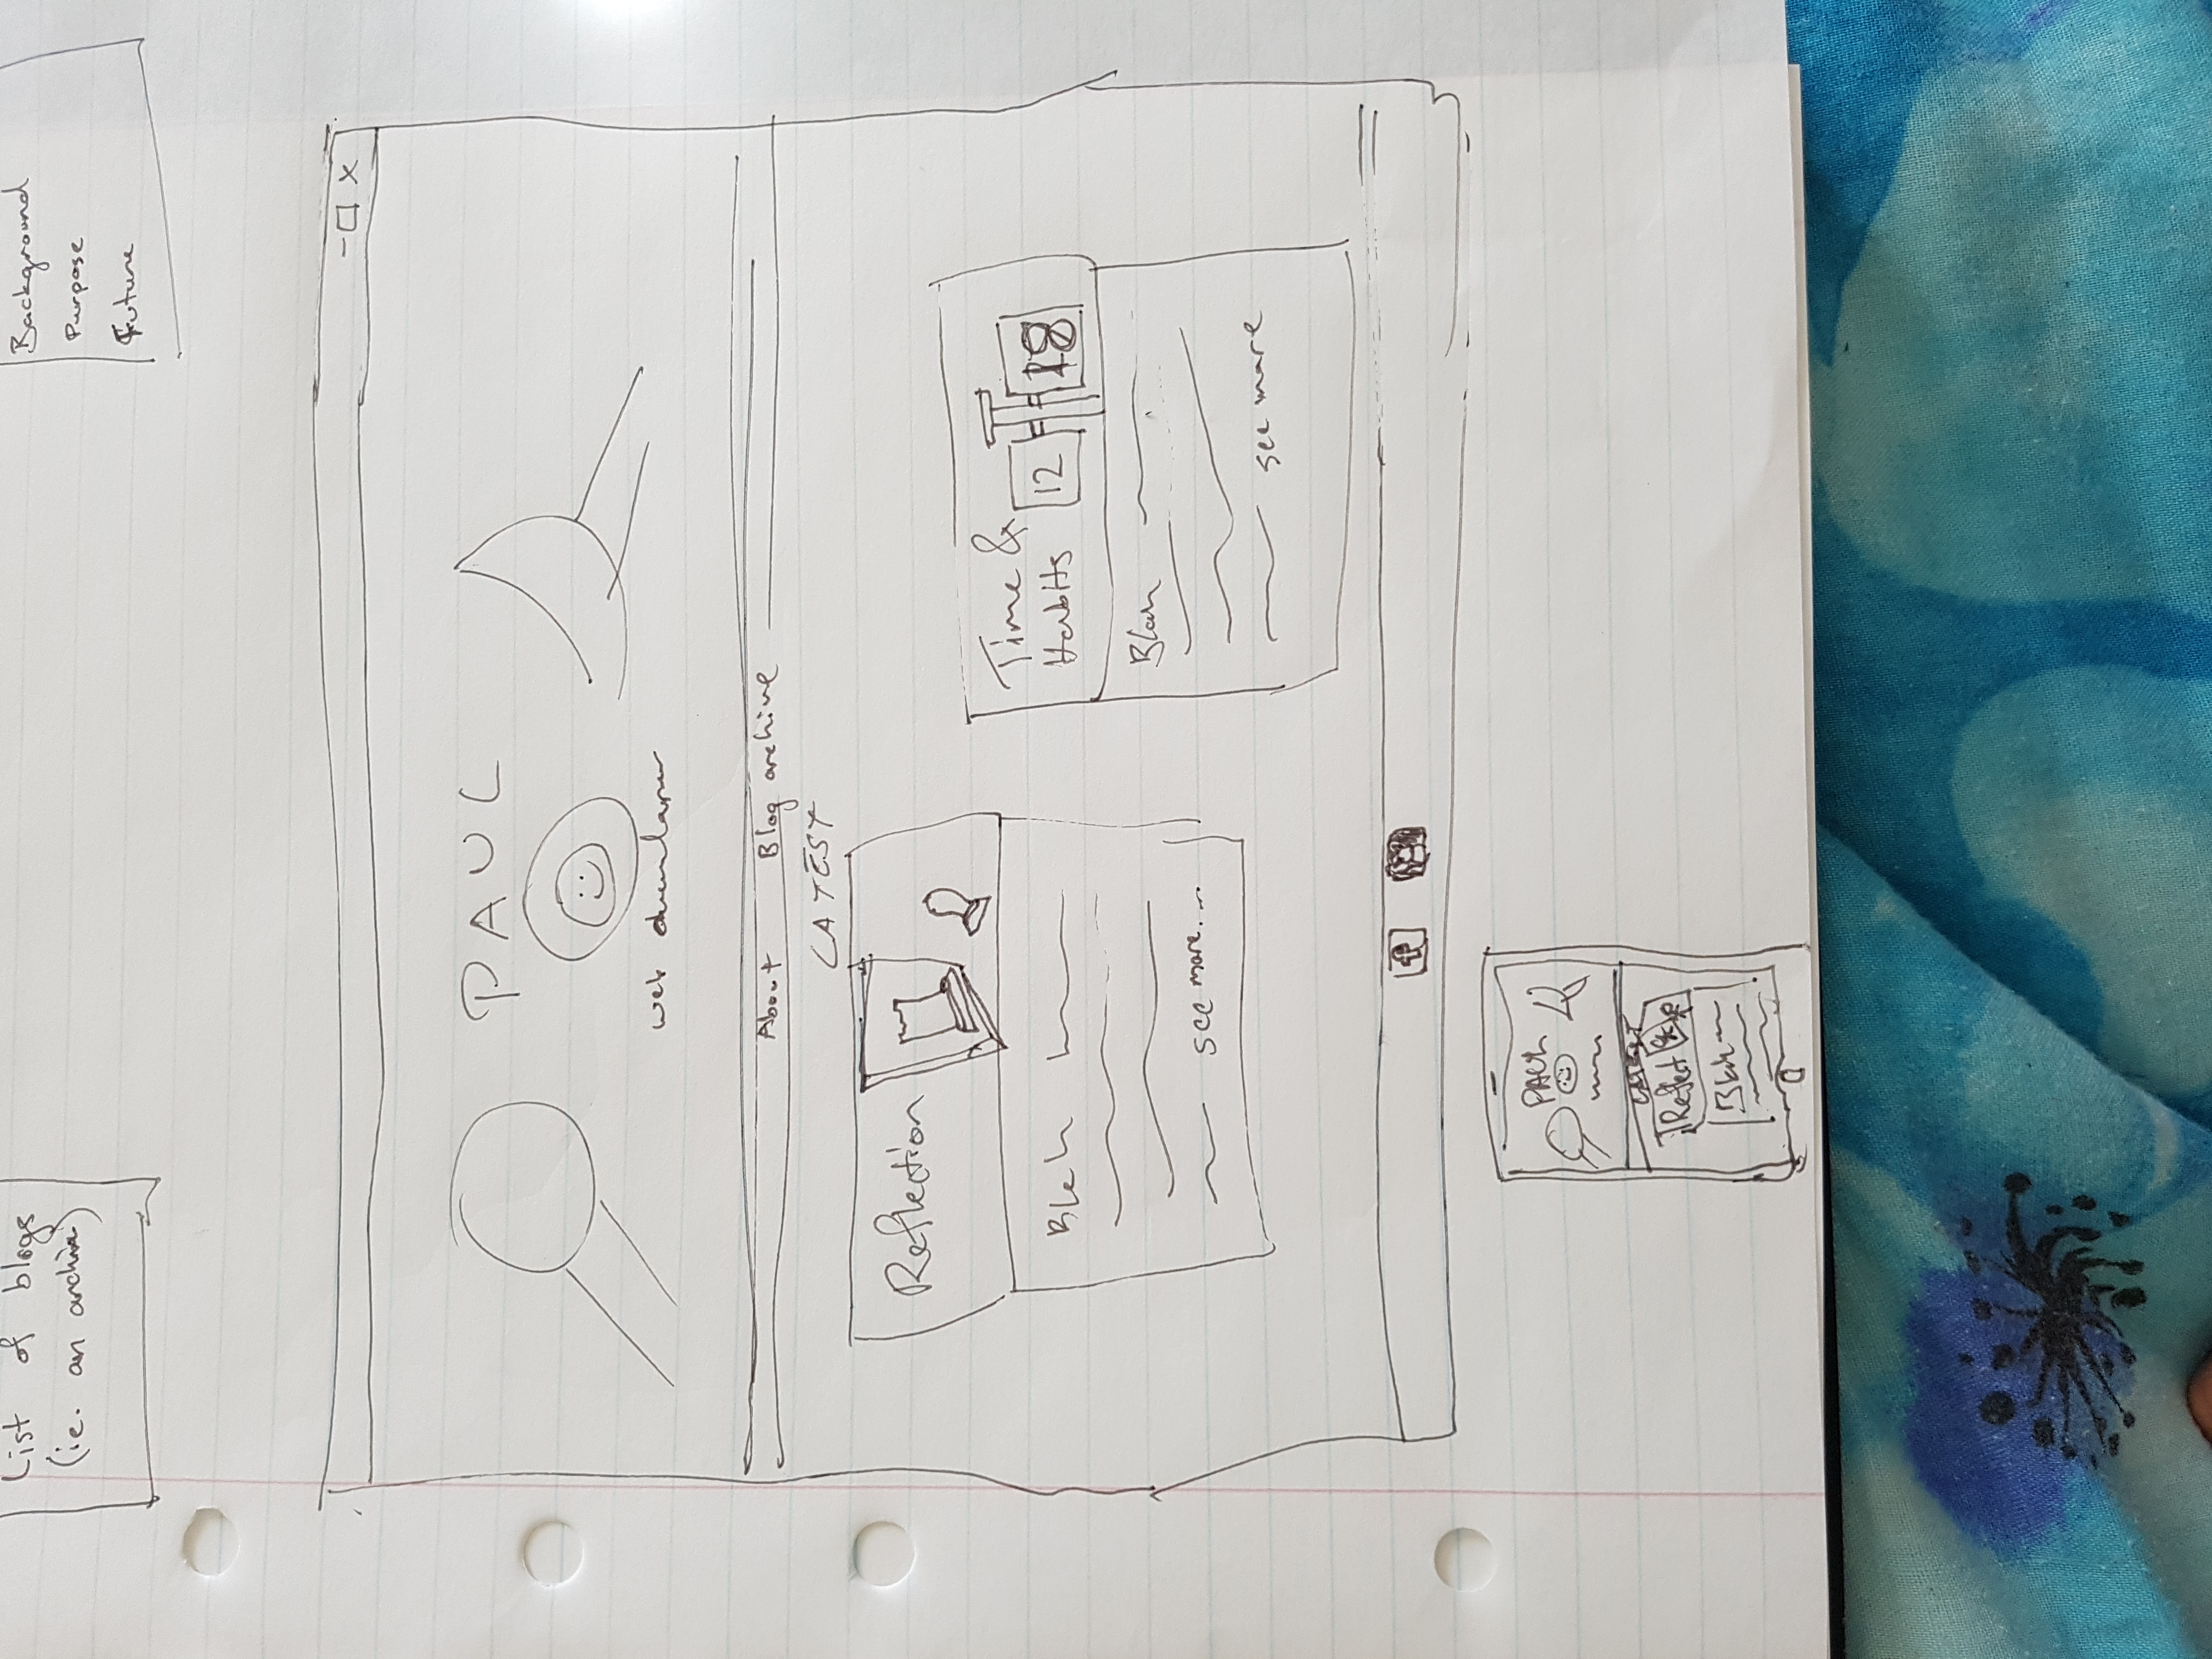 List of blogs
(i.e. an archive)
Background
Purpose
Future
- □ x
PAUL
web developer
About Blog archive
LATEST
Reflection
Blah
see more...
Time &
Habits
12
18
Blah
see more
f
PAUL
LATEST
Reflect
Blah